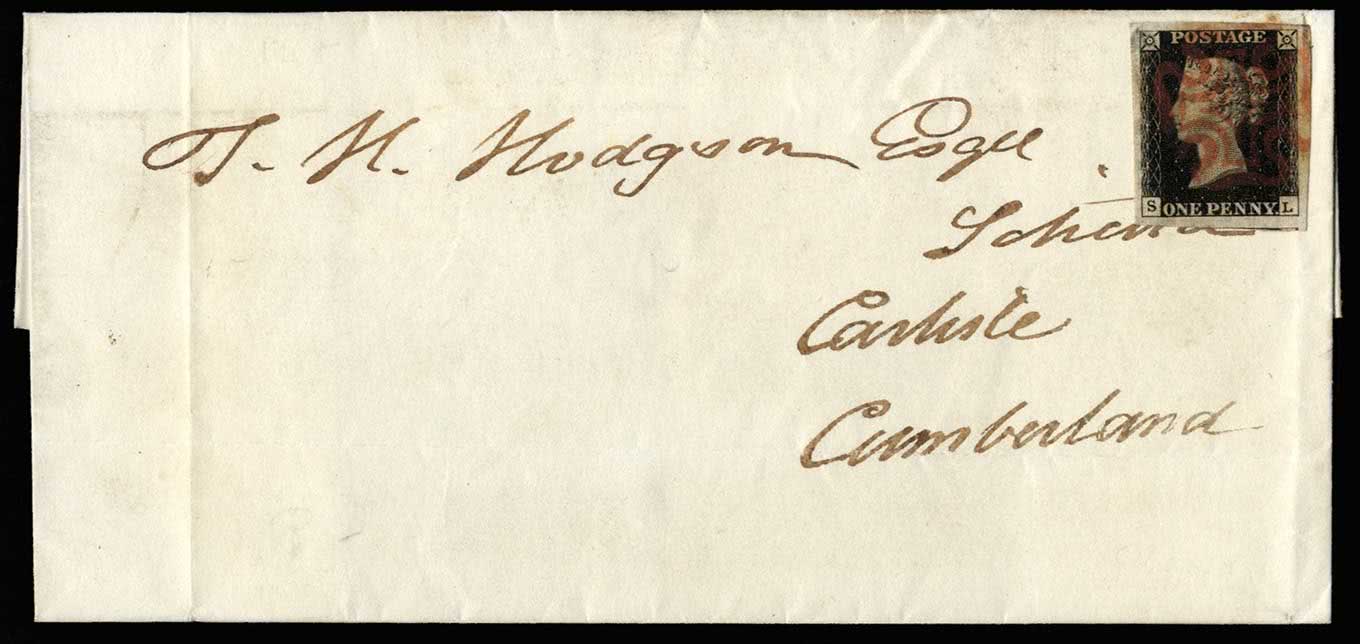 POSTAGE
S ONE PENNY. L
T. H. Hodgson Esqre
Carlisle
Cumberland